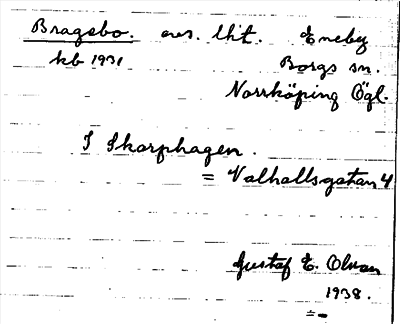 Bragebo. avs. lht. Eneby
kb 1931 Borgs sn.
Norrköping Ögl.
I Skarphagen.
= Valhallsgatan 4
Gustaf E. Olson
1938.
=-